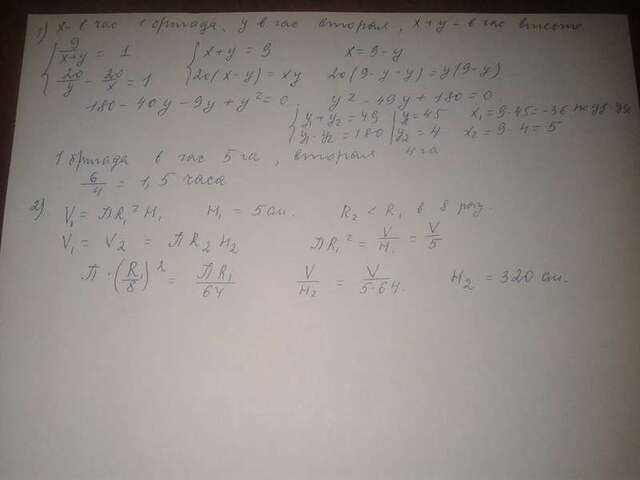 1) x - в час 1 бригада, y в час вторая, x+y - в час вместе
{ 9/(x+y) = 1 { x+y = 9 x = 9-y
20/y - 20/x = 1 20(x-y) = xy 20(9-y-y) = y(9-y)
180-40y-9y+y²=0, y²-49y+180=0
{ y₁+y₂=49 | y=45 x₁=9-45=-36 не уд. усл
y₁·y₂=180 | y₂=4 x₂=9-4=5
1 бригада в час 5 га, вторая 4 га
6/4 = 1,5 часа
2) V₁ = ПR₁²H₁ H₁ = 5 см. R₂ < R₁ в 8 раз.
V₁ = V2 = ПR₂H₂ ПR₁² = V/H₁ = V/5
П·(R₁/8)² = ПR₁/64 V/H₂ = V/5·64. H₂ = 320 см.